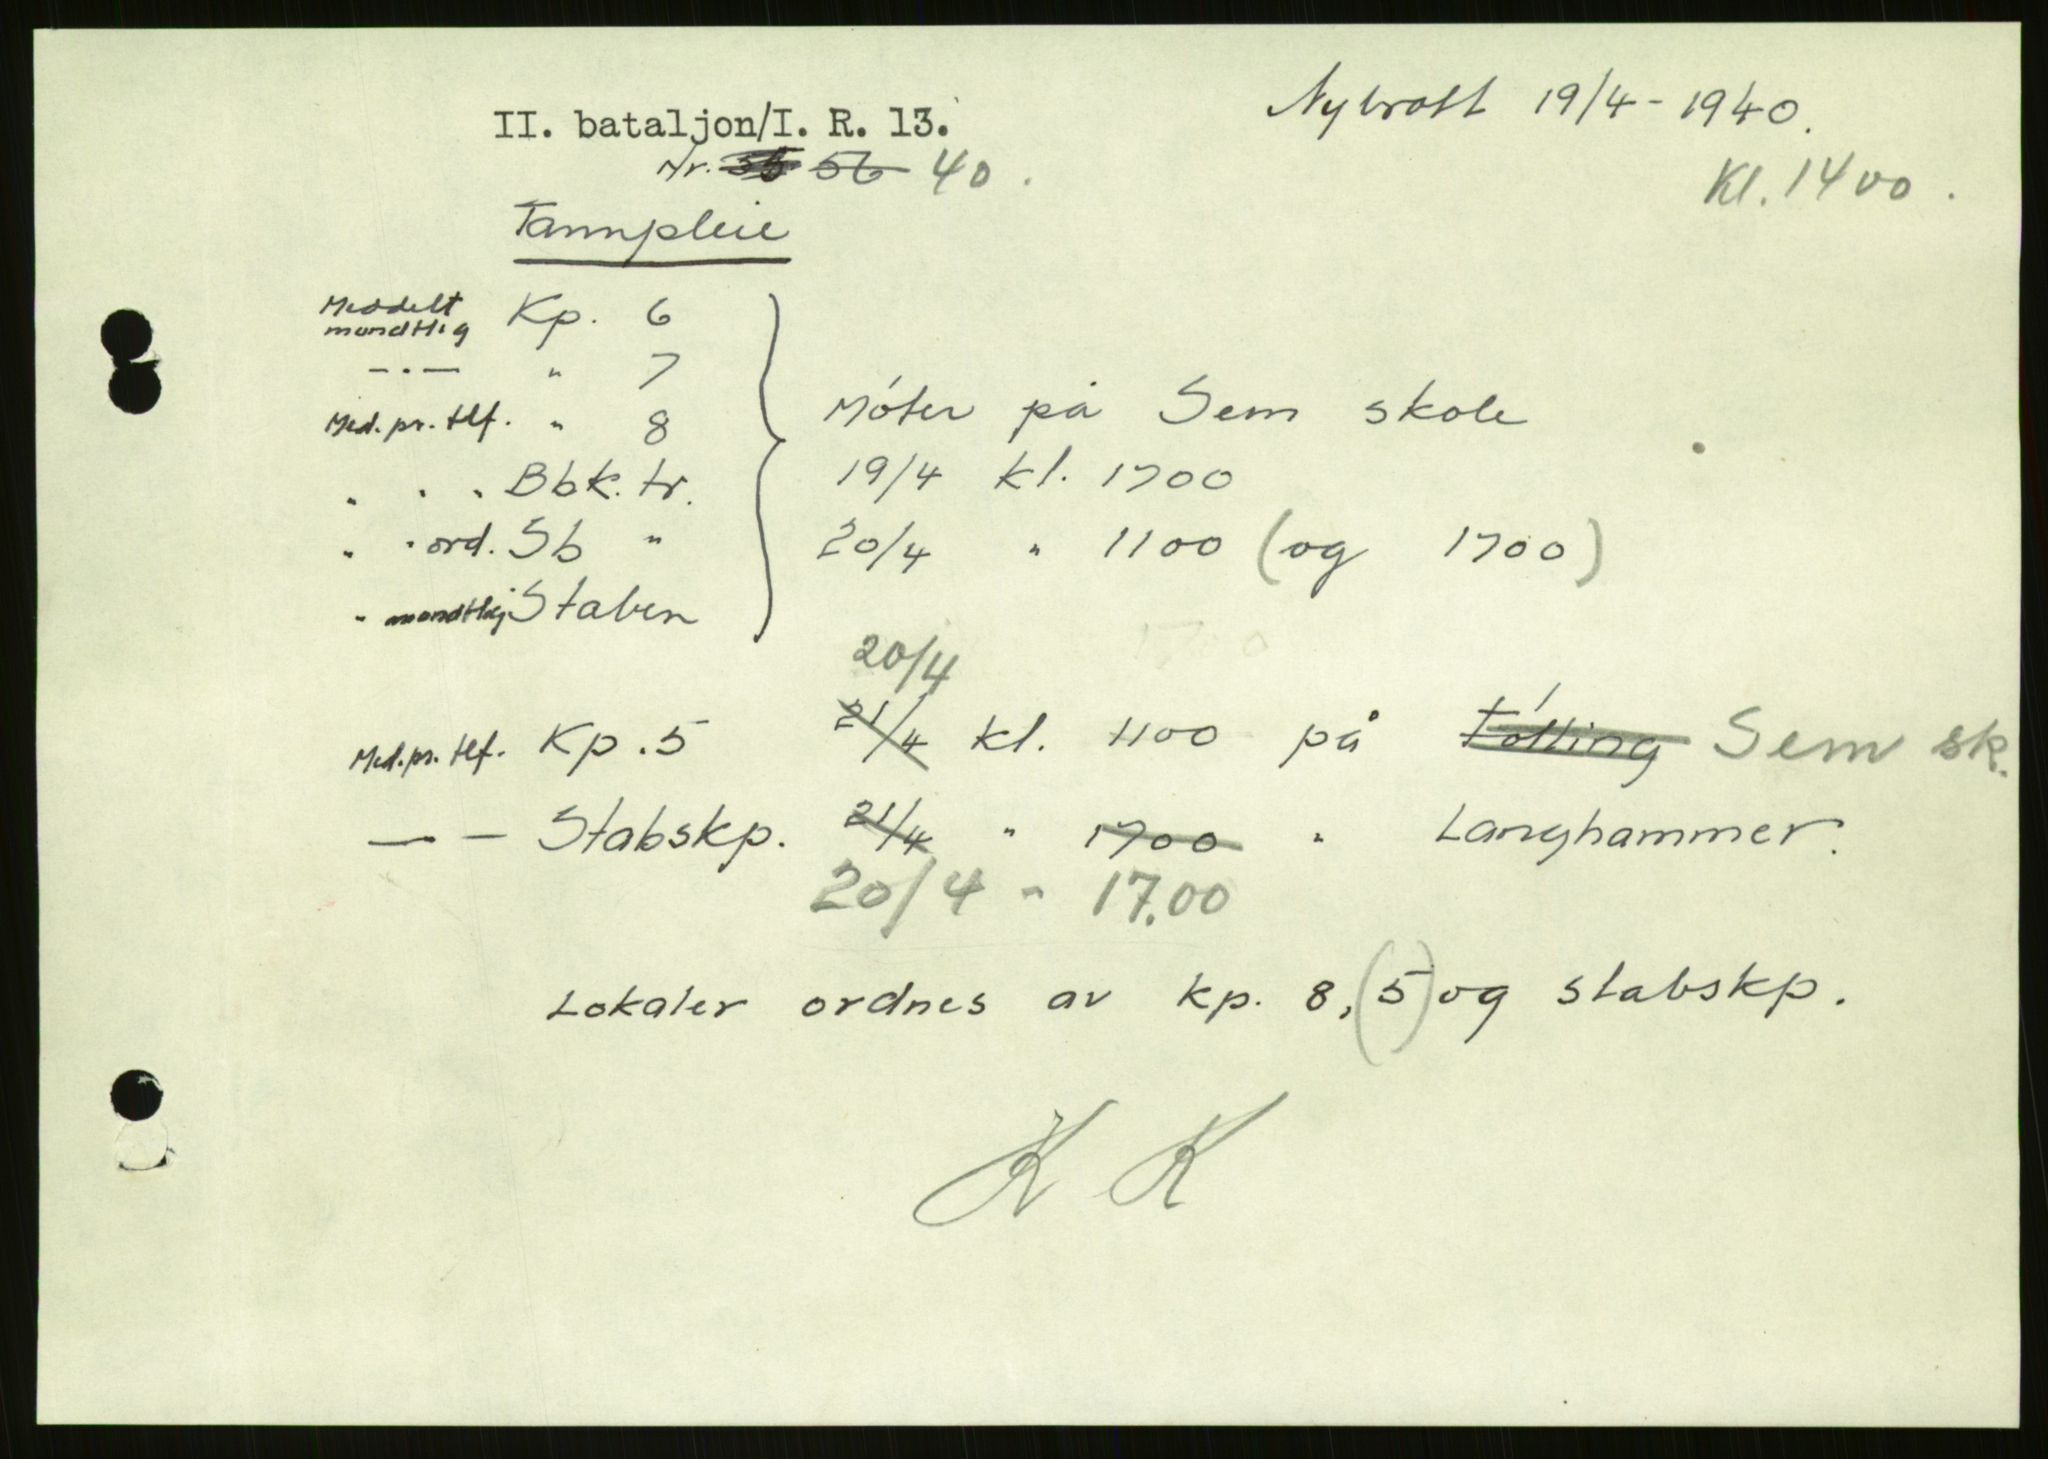 II. bataljon/I. R. 13.
Nybrott 19/4 - 1940.
Nr. 56 40.
Kl. 1400.
Tannpleie
Meddelt mundtlig Kp. 6
— · — " 7
Med. pr. tlf. " 8
Møter på Sem skole
" " " Bbk. tr.
19/4 kl. 1700
" " ord. Sb "
20/4 " 1100 (og 1700)
" mundtlig Staben
20/4
Med. pr. tlf. Kp. 5 21/4 kl. 1100 på Følling Sem sk.
— — Stabskp. 21/4 " 1700 " Langhammer.
20/4 " 17.00
Lokaler ordnes av kp. 8, (5) og stabskp.
K K